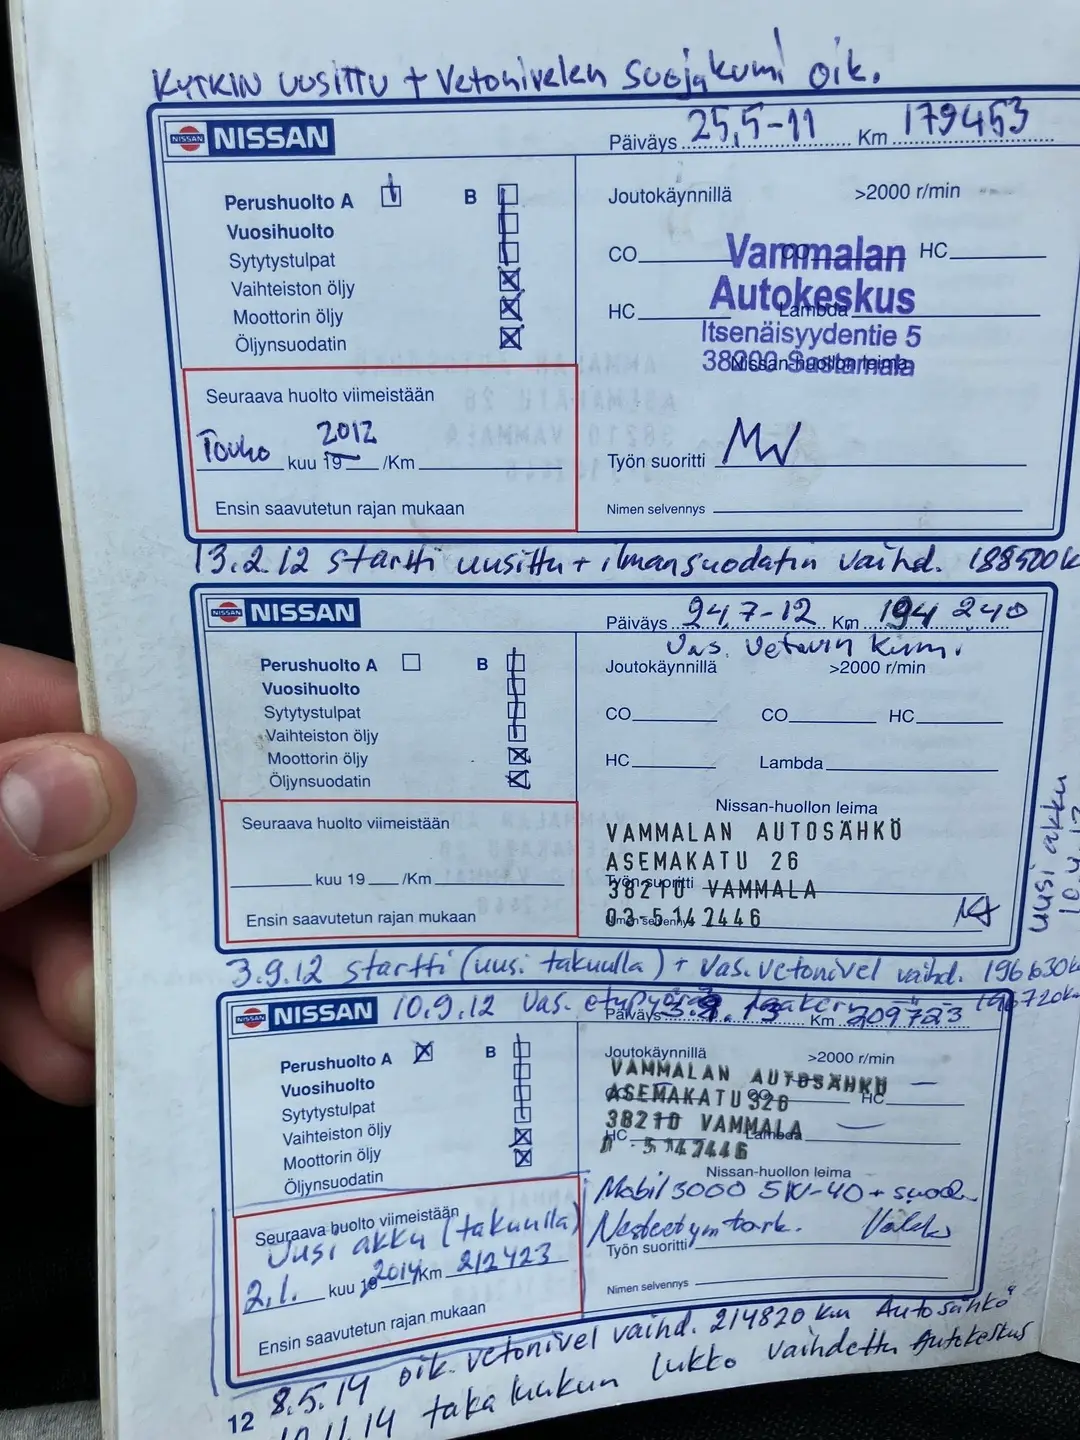 KYTKIN UUSITTU + Vetonivelen suojakumi oik.
NISSAN NISSAN
Päiväys 25,5-11 Km 179453
Perushuolto A B
Vuosihuolto
Sytytystulpat
Vaihteiston öljy
Moottorin öljy
Öljynsuodatin
Joutokäynnillä >2000 r/min
CO CO HC
HC Lambda
Vammalan
Autokeskus
Itsenäisyydentie 5
38200 Sastamala
Nissan-huollon leima
Seuraava huolto viimeistään
Touko kuu 19 2012 /Km
Ensin saavutetun rajan mukaan
Työn suoritti
Nimen selvennys
13.2.12 startti uusittu + ilmansuodatin vaihd. 188500k
NISSAN NISSAN
Päiväys 24,7-12 Km 194 240
Vas. Vetävin kumi.
Perushuolto A B
Vuosihuolto
Sytytystulpat
Vaihteiston öljy
Moottorin öljy
Öljynsuodatin
Joutokäynnillä >2000 r/min
CO CO HC
HC Lambda
Nissan-huollon leima
VAMMALAN AUTOSÄHKÖ
ASEMAKATU 26
38210 VAMMALA
03-5142446
Työn suoritti
Nimen selvennys
Seuraava huolto viimeistään
kuu 19 /Km
Ensin saavutetun rajan mukaan
Uusi akku
3.9.12 startti (uusi takuulla) + Vas. vetonivel vaihd. 196630k
NISSAN NISSAN
10.9.12 Vas. etupyörän laakeri 196720k
Päiväys Km 209723
Perushuolto A B
Vuosihuolto
Sytytystulpat
Vaihteiston öljy
Moottorin öljy
Öljynsuodatin
Joutokäynnillä >2000 r/min
CO HC
HC Lambda
VAMMALAN AUTOSÄHKÖ
ASEMAKATU 26
38210 VAMMALA
5142446
Nissan-huollon leima
Mobil 3000 5W-40 + suod.
Työn suoritti
Nimen selvennys
Seuraava huolto viimeistään
Uusi akku (takuulla)
2.1. kuu 19 2014 /Km 212423
Ensin saavutetun rajan mukaan
8.5.14 oik. vetonivel vaihd. 214820 km Autosähkö
11.14 taka luukun lukko vaihdettu Autokeskus
12